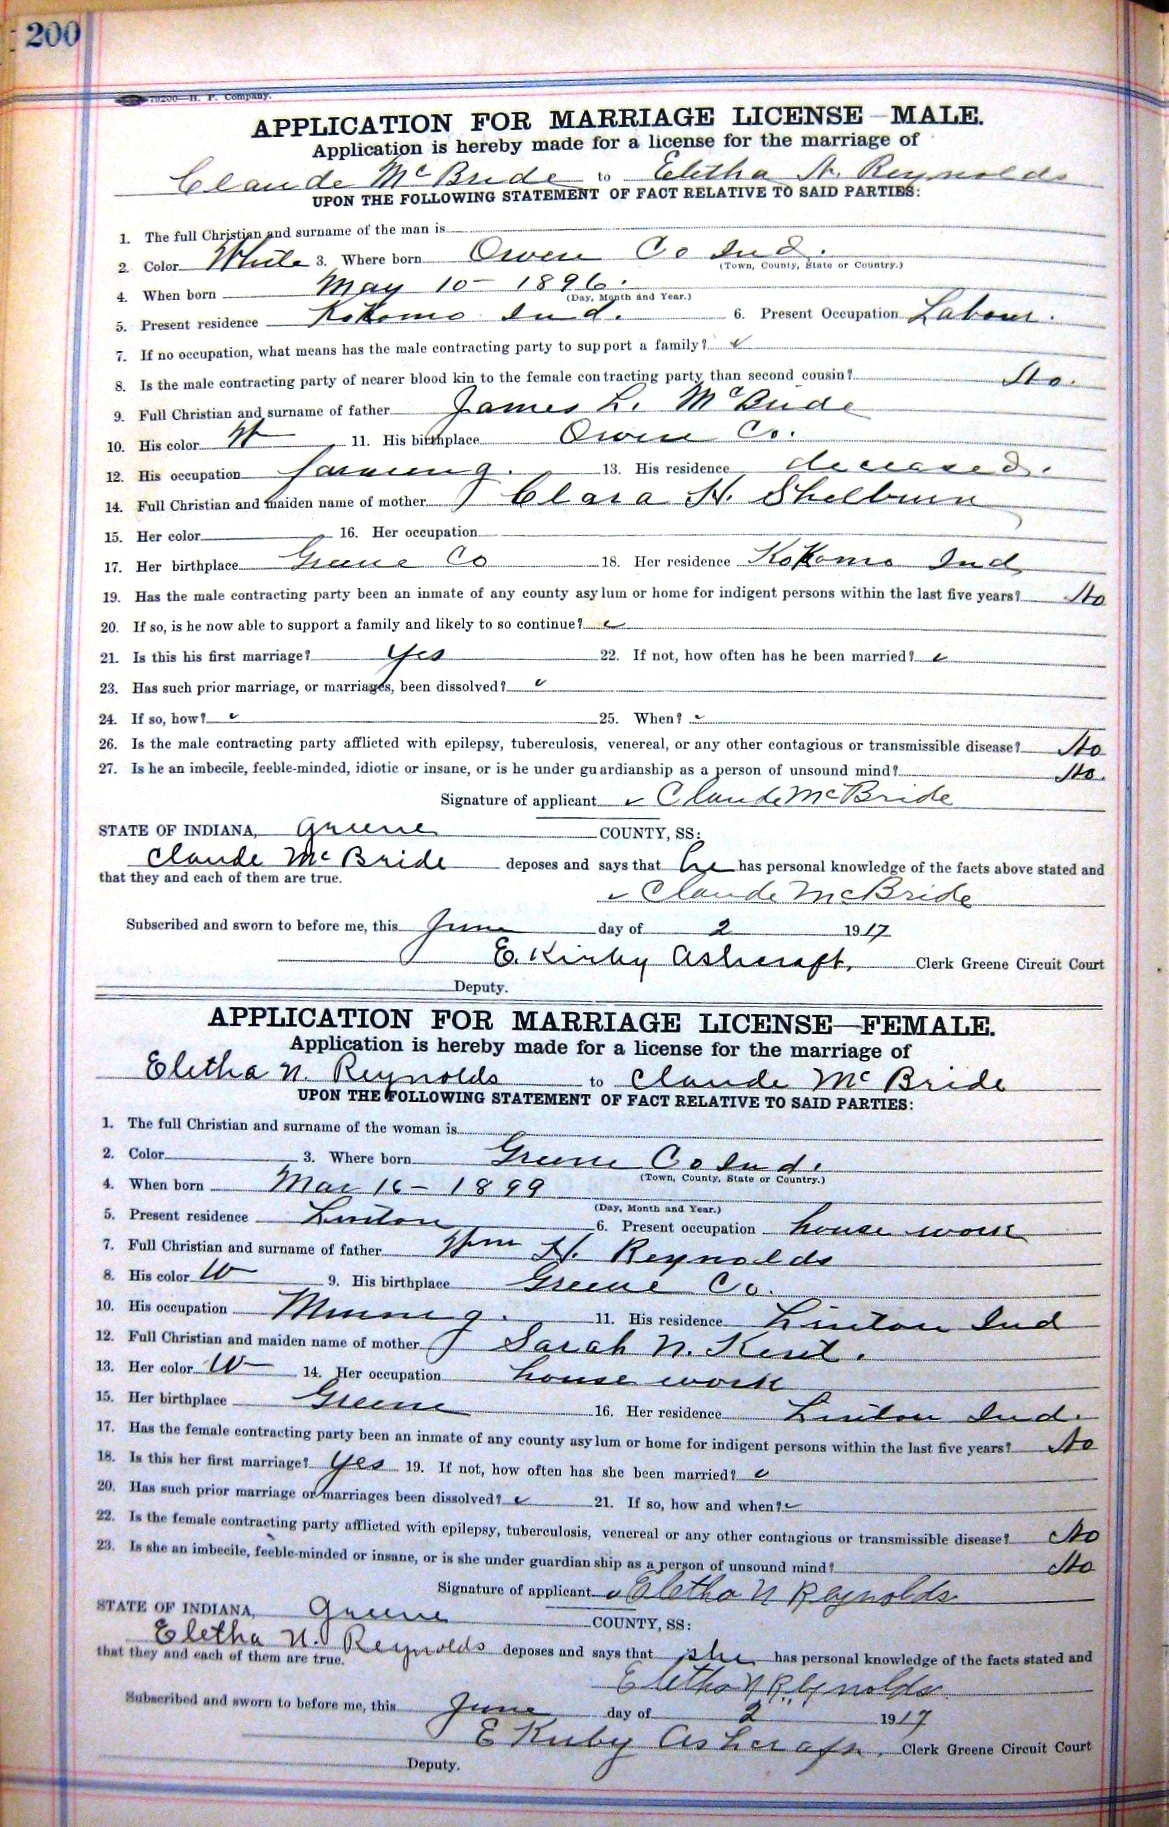 200
79200—H. P. Company.
APPLICATION FOR MARRIAGE LICENSE—MALE.
Application is hereby made for a license for the marriage of
Claude McBride to Eletha N. Reynolds
UPON THE FOLLOWING STATEMENT OF FACT RELATIVE TO SAID PARTIES:
1. The full Christian and surname of the man is
2. Color White 3. Where born Owen Co Ind.
(Town, County, State or Country.)
4. When born May 10 - 1896.
(Day, Month and Year.)
5. Present residence Kokomo Ind. 6. Present Occupation Labour.
7. If no occupation, what means has the male contracting party to support a family? ✓
8. Is the male contracting party of nearer blood kin to the female contracting party than second cousin? No.
9. Full Christian and surname of father James L. McBride
10. His color W 11. His birthplace Owen Co.
12. His occupation farming. 13. His residence deceased.
14. Full Christian and maiden name of mother Clara H. Shelburn
15. Her color 16. Her occupation
17. Her birthplace Greene Co 18. Her residence Kokomo Ind
19. Has the male contracting party been an inmate of any county asylum or home for indigent persons within the last five years? No
20. If so, is he now able to support a family and likely to so continue? ✓
21. Is this his first marriage? Yes 22. If not, how often has he been married? ✓
23. Has such prior marriage, or marriages, been dissolved? ✓
24. If so, how? ✓ 25. When? ✓
26. Is the male contracting party afflicted with epilepsy, tuberculosis, venereal, or any other contagious or transmissible disease? No
27. Is he an imbecile, feeble-minded, idiotic or insane, or is he under guardianship as a person of unsound mind? No.
Signature of applicant ✓ Claude McBride
STATE OF INDIANA, Greene COUNTY, SS:
Claude McBride deposes and says that he has personal knowledge of the facts above stated and
that they and each of them are true.
✓ Claude McBride
Subscribed and sworn to before me, this June day of 2 1917
E. Kirby Ashcraft, Clerk Greene Circuit Court
Deputy.
APPLICATION FOR MARRIAGE LICENSE—FEMALE.
Application is hereby made for a license for the marriage of
Eletha N. Reynolds to Claude McBride
UPON THE FOLLOWING STATEMENT OF FACT RELATIVE TO SAID PARTIES:
1. The full Christian and surname of the woman is
2. Color 3. Where born Greene Co Ind.
(Town, County, State or Country.)
4. When born Mar 16 - 1899
(Day, Month and Year.)
5. Present residence Linton 6. Present occupation house work
7. Full Christian and surname of father Wm H. Reynolds
8. His color W 9. His birthplace Greene Co.
10. His occupation Mining. 11. His residence Linton Ind
12. Full Christian and maiden name of mother Sarah N. Kent.
13. Her color W 14. Her occupation house work
15. Her birthplace Greene 16. Her residence Linton Ind.
17. Has the female contracting party been an inmate of any county asylum or home for indigent persons within the last five years? No
18. Is this her first marriage? Yes 19. If not, how often has she been married? ✓
20. Has such prior marriage or marriages been dissolved? ✓ 21. If so, how and when? ✓
22. Is the female contracting party afflicted with epilepsy, tuberculosis, venereal or any other contagious or transmissible disease? No
23. Is she an imbecile, feeble-minded or insane, or is she under guardianship as a person of unsound mind? No
Signature of applicant ✓ Eletha N Reynolds
STATE OF INDIANA, Greene COUNTY, SS:
Eletha N. Reynolds deposes and says that she has personal knowledge of the facts stated and
that they and each of them are true.
Eletha N Reynolds
Subscribed and sworn to before me, this June day of 2 1917
E Kirby Ashcraft. Clerk Greene Circuit Court
Deputy.